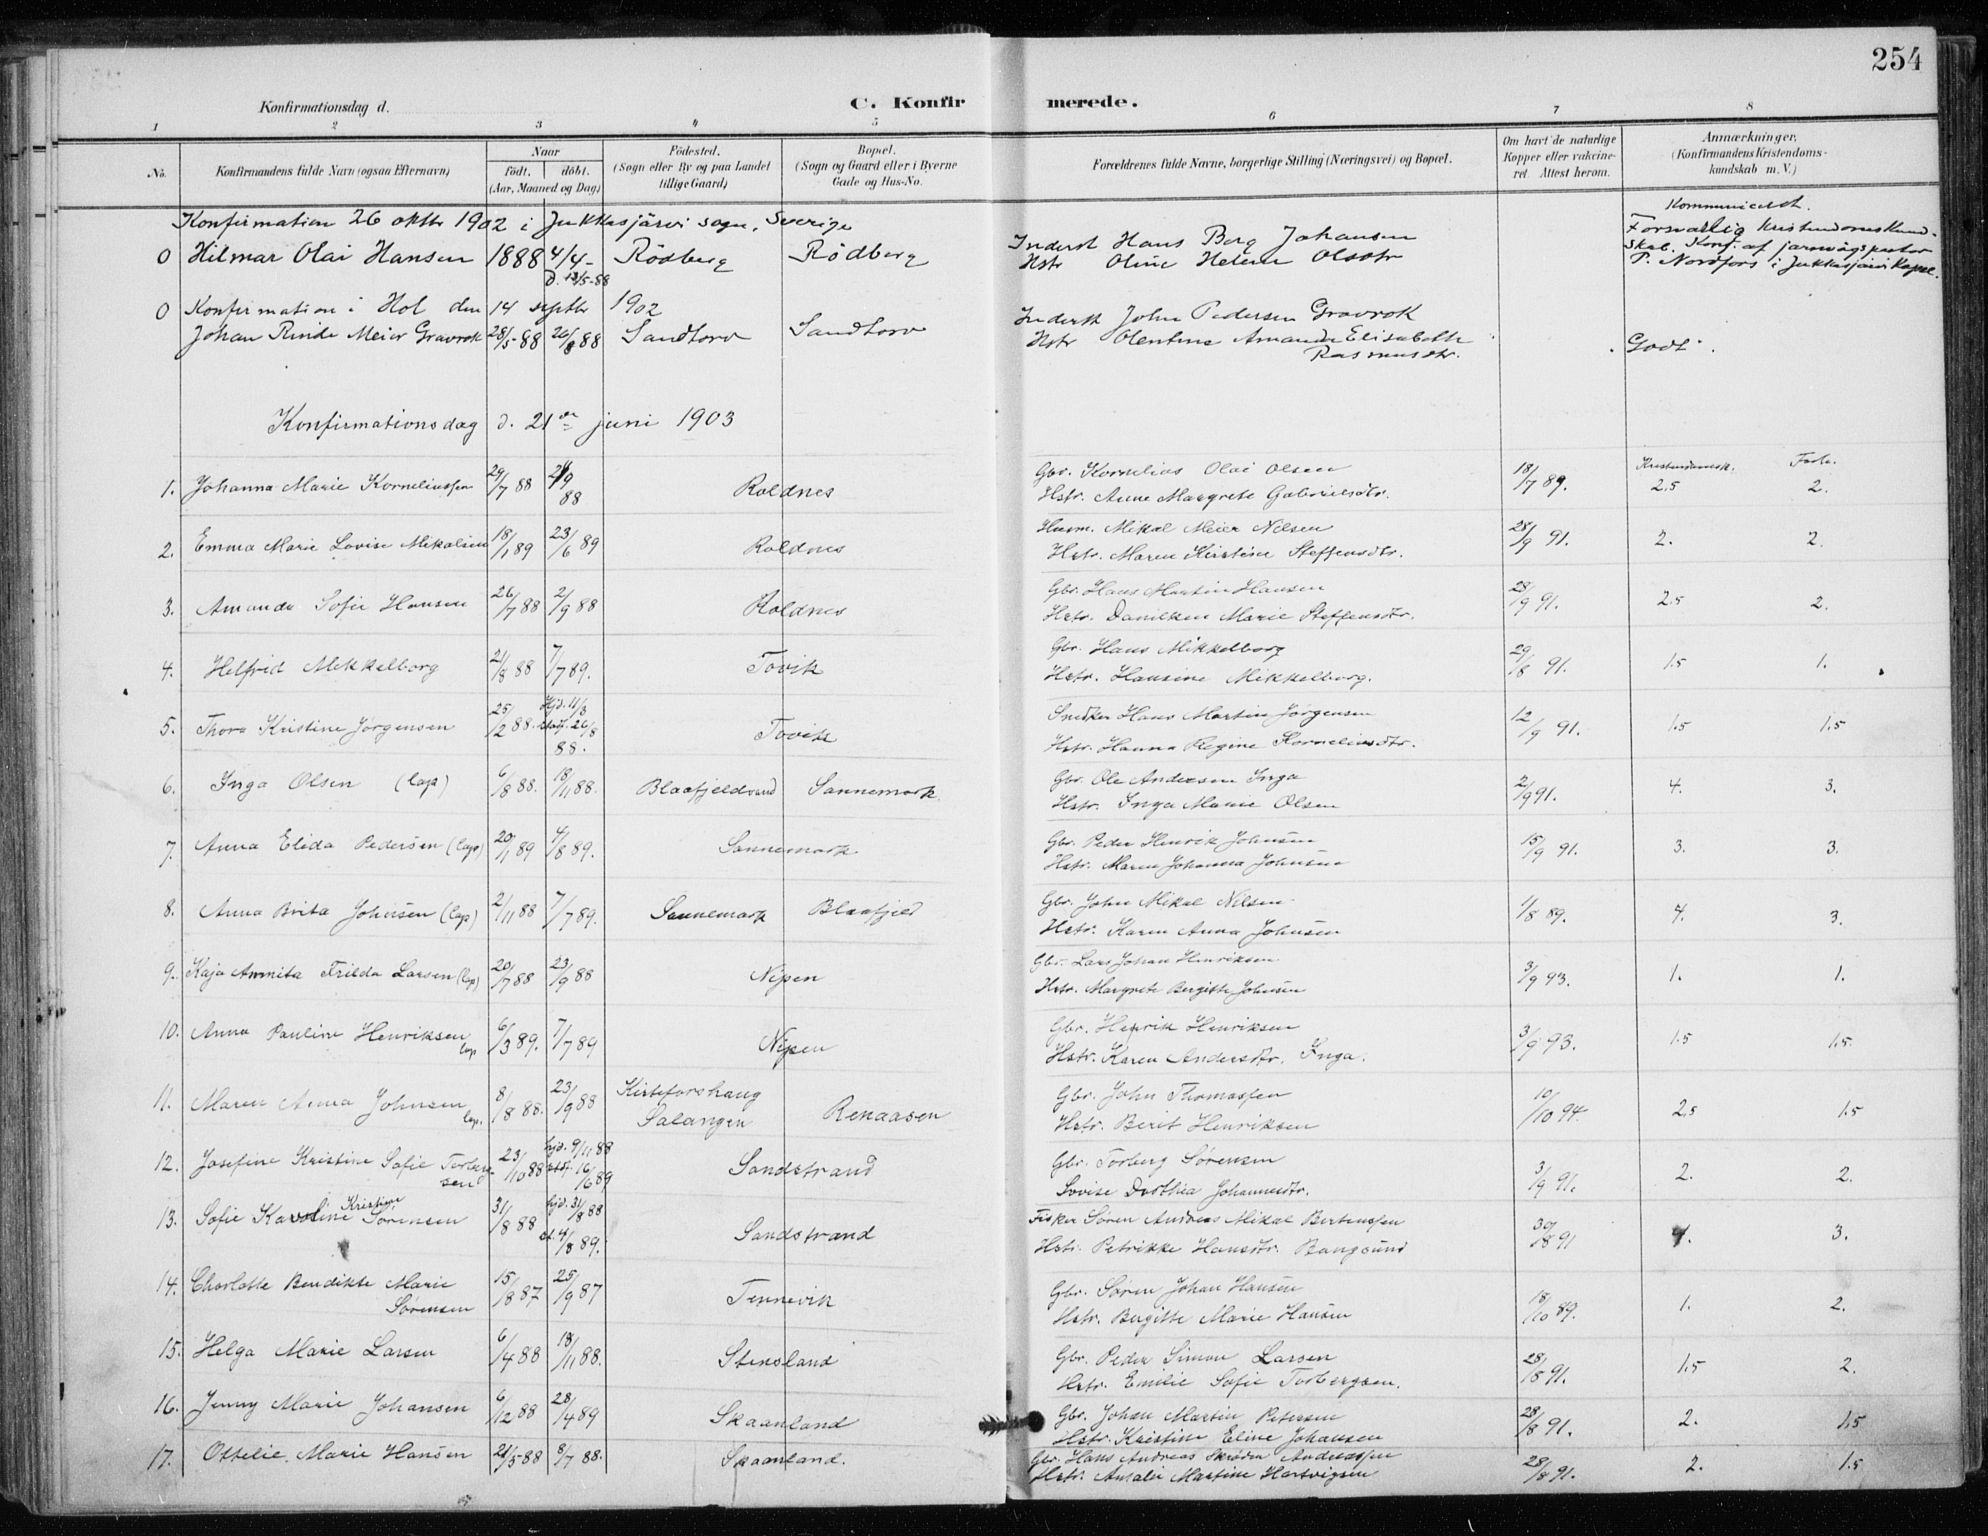 254
Konfirmationsdag d.
C. Konfir merede.
1 2 3 4 5 6 7 8
No. Konfirmandens fulde Navn (ogsaa Efternavn) Naar født. døbt. (Aar, Maaned og Dag) Fødested. (Sogn eller By og paa Landet tillige Gaard) Bopæl. (Sogn og Gaard eller i Byerne Gade og Hus-No. Forældrenes fulde Navne, borgerlige Stilling (Næringsvei) og Bopæl. Om havt de naturlige Kopper eller vakcineret. Attest herom. Anmærkninger. (Konfirmandens Kristendomskundskab m. V.)
Konfirmation 26 oktbr 1902 i Jukkasjärvi sogn, Sverige
Kommuniceret.
0 Hilmar Olai Hansen 1888 4/4- Rödberg Rödberg Inderst Hans Berg Johansen
D. 13/5-88 Hstr Oline Helene Olsdtr
Forsvarlig Kristendomskund-
skab. Konf. af järnvägspastor
P. Nordfors i Jukkasjärvi Kapel.
0 Konfirmation i Hol den 14 septbr 1902
Johan Rinde Meier Gravrok 28/5-88 26/8 88 Sandtorv Sandtorv Inderst John Pedersen Gravrok
Hstr Olentine Amanda Elisabeth
Rasmusdtr. Godt.
Konfirmationsdag d. 21de juni 1903
Kristendomsk. Forh.
1. Johanna Marie Korneliussen 29/7 88 2/9 88 Roldnes Gbr. Kornelius Olai Olsen 18/7 89. 2.5 2.
Hstr. Anne Margrete Gabrielsdtr.
2. Emma Marie Lovise Mikalsen 18/1 89 23/6 89 Roldnes Husm. Mikal Meier Nilsen 28/9 91. 2. 2.
Hstr. Maren Kirstine Steffensdtr.
3. Amanda Sofie Hansen 26/7 88 2/9 88 Roldnes Gbr. Hans Martin Hansen 28/9 91. 2.5 2.
Hstr. Danilken Marie Steffensdtr.
4. Helfrid Mekkelborg 21/8 88 7/7 89. Tovik Gbr. Hans Mikkelborg 29/8 91. 1.5 1.
Hstr. Hansine Mikkelborg.
5. Thora Kristine Jørgensen 25/2 88. Hjd. 11/3 stadf. 26/8 88. Tovik Snedker Hans Martin Jørgensen 12/9 91. 1.5 1.5
Hstr. Hanna Regine Korneliusdtr.
6. Inga Olsen (lap) 6/8 88. 18/11 88. Blaafjeldvand Sannemark. Gbr. Ole Andersen Inga 2/9 91. 4. 3.
Hstr. Inga Marie Olsen
7. Anna Elida Pedersen (lap) 20/1 89 4/8 89. Sannemark Gbr. Peder Henrik Johnsen 15/9 91. 3. 3.
Hstr. Maren Johanna Johnsen
8. Anna Brita Johnsen (lap) 2/11 88 7/7 89. Sannemark Blaafjeld Gbr. John Mikal Nilsen 1/8 89. 4. 3.
Hstr. Karen Anna Johnsen
9. Kaja Annita Frilda Larsen (lap) 20/7 88 23/9 88 Nipen Gbr. Lars Johan Henriksen 3/9 93. 1. 1.
Hstr. Margrete Bergitte Johnsen
10. Anna Pauline Henriksen lap 6/3 89. 7/7 89 Nipen Gbr. Henrik Henriksen 3/9 93. 1.5 1.5.
Hstr. Karen Andersdtr. Inga.
11. Maren Anna Johnsen lap. 8/8 88. 23/9 88 Salangen Renaasen Gbr. John Thomassen 10/10 94. 2.5 1.5
Hstr. Berit Henriksen
12. Josefine Kristine Sofie Torberg- sen 23/10 88 hjd. 9/11 88 stdf. 16/6 89 Sandstrand Gbr. Torberg Sørensen 3/9 91. 2. 2.
Lovise Dorthea Johannesdtr.
13. Sofie Karoline Kristine Sørensen 31/8 88 hjd. 31/8 88 st. 4/8 89. Sandstrand Fisker Søren Andreas Mikal Bertenssen 30/8 91 3.
Hstr. Petrikke Hansdtr. Bangsund
14. Charlotte Bendikte Marie Sørensen 15/8 87 25/9 87 Tennevik Gbr. Søren Johan Hansen 18/10 89. 1. 2.
Hstr. Bergitte Marie Hansen
15. Helga Marie Larsen 6/4 88 18/11 88. Stensland Gbr. Peder Simon Larsen 28/8 91. 1.5 2.
Hstr. Emilie Sofie Torbergsen.
16. Jenny Marie Johansen 6/12 88 28/4 89 Skaanland Gbr. Johan Martin Petersen 28/8 91. 2. 1.5
Hstr. Kristine Eline Johansen
17. Ottelie Marie Hansen 21/5-88 8/7 88. Skaanland. Gbr. Hans Andreas Andreassen 28/8 91. 2. 1.5
Hstr. Amalie Martine Hartvigsen